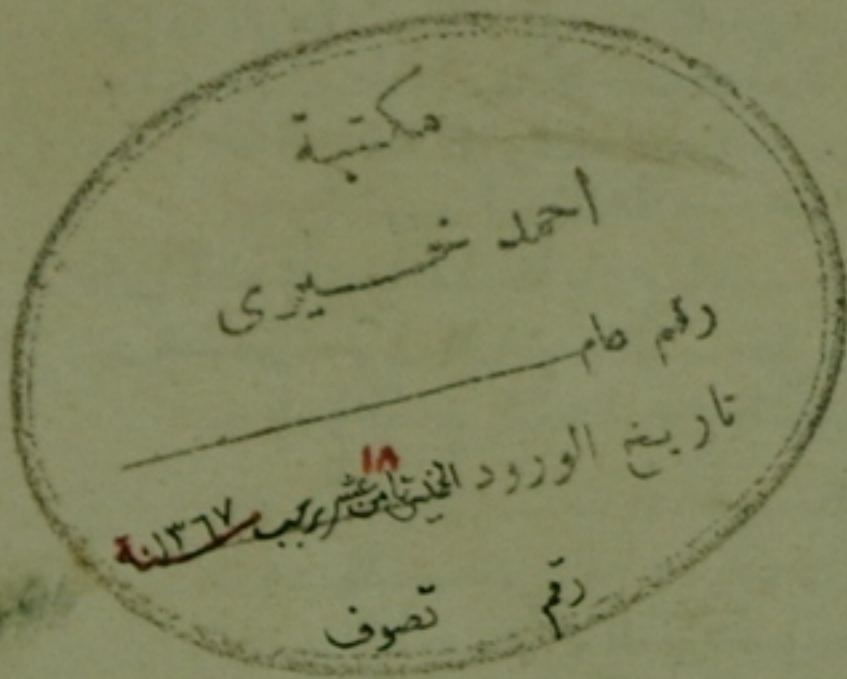 مكتبة
احمد خيرى
رقم عام
تاريخ الورود الخميس ثامن عشر رجب سنة ١٣٦٧
١٨
رقم تصوف